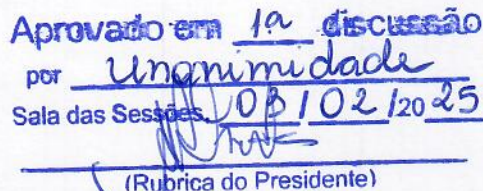 Aprovado em 1ª discussão
por Unanimidade
Sala das Sessões, 03 / 02 /20 25
(Rubrica do Presidente)